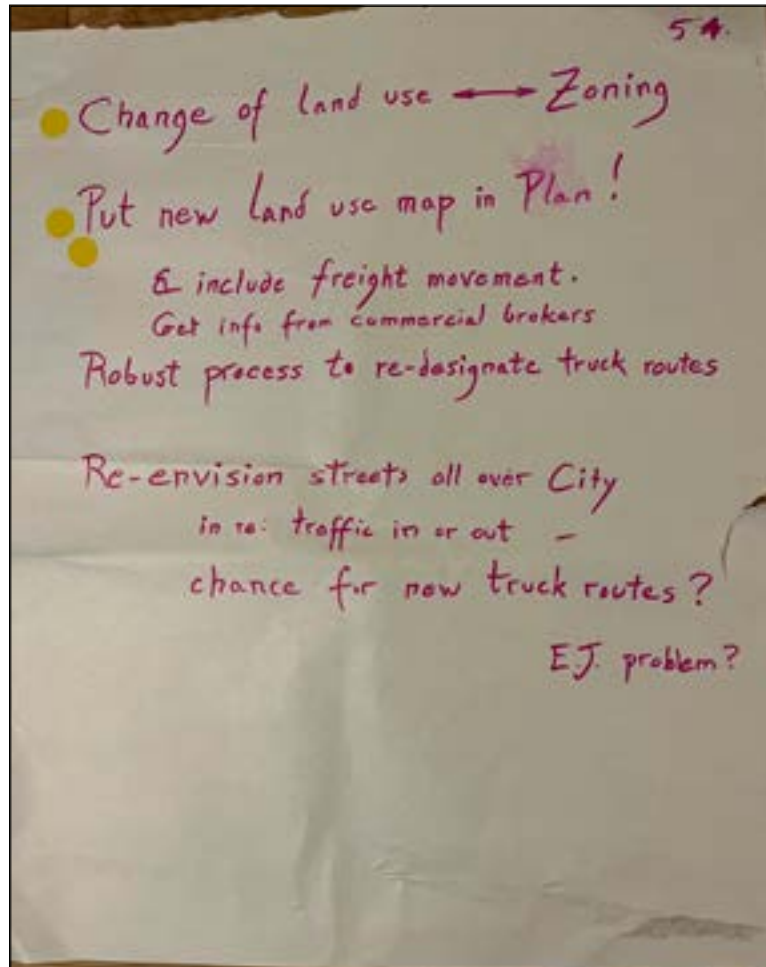 54.
Change of land use ⟷ Zoning
Put new land use map in Plan!
& include freight movement.
Get info from commercial brokers
Robust process to re-designate truck routes
Re-envision streets all over City
in re: traffic in or out –
chance for new truck routes?
E.J. problem?